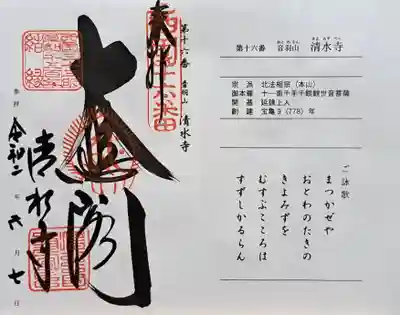 奉拝
西国十六番
第十六番 音羽山 清水寺
大悲閣
清水寺
参拝 令和二年六月七日
第十六番 音羽山 清水寺
おとわさん きよみずでら
宗派 北法相宗(本山)
御本尊 十一面千手千眼観世音菩薩
開基 延鎮上人
創建 宝亀9(778)年
ご詠歌
まつかぜや
おとわのたきの
きよみずを
むすぶこころは
すずしかるらん